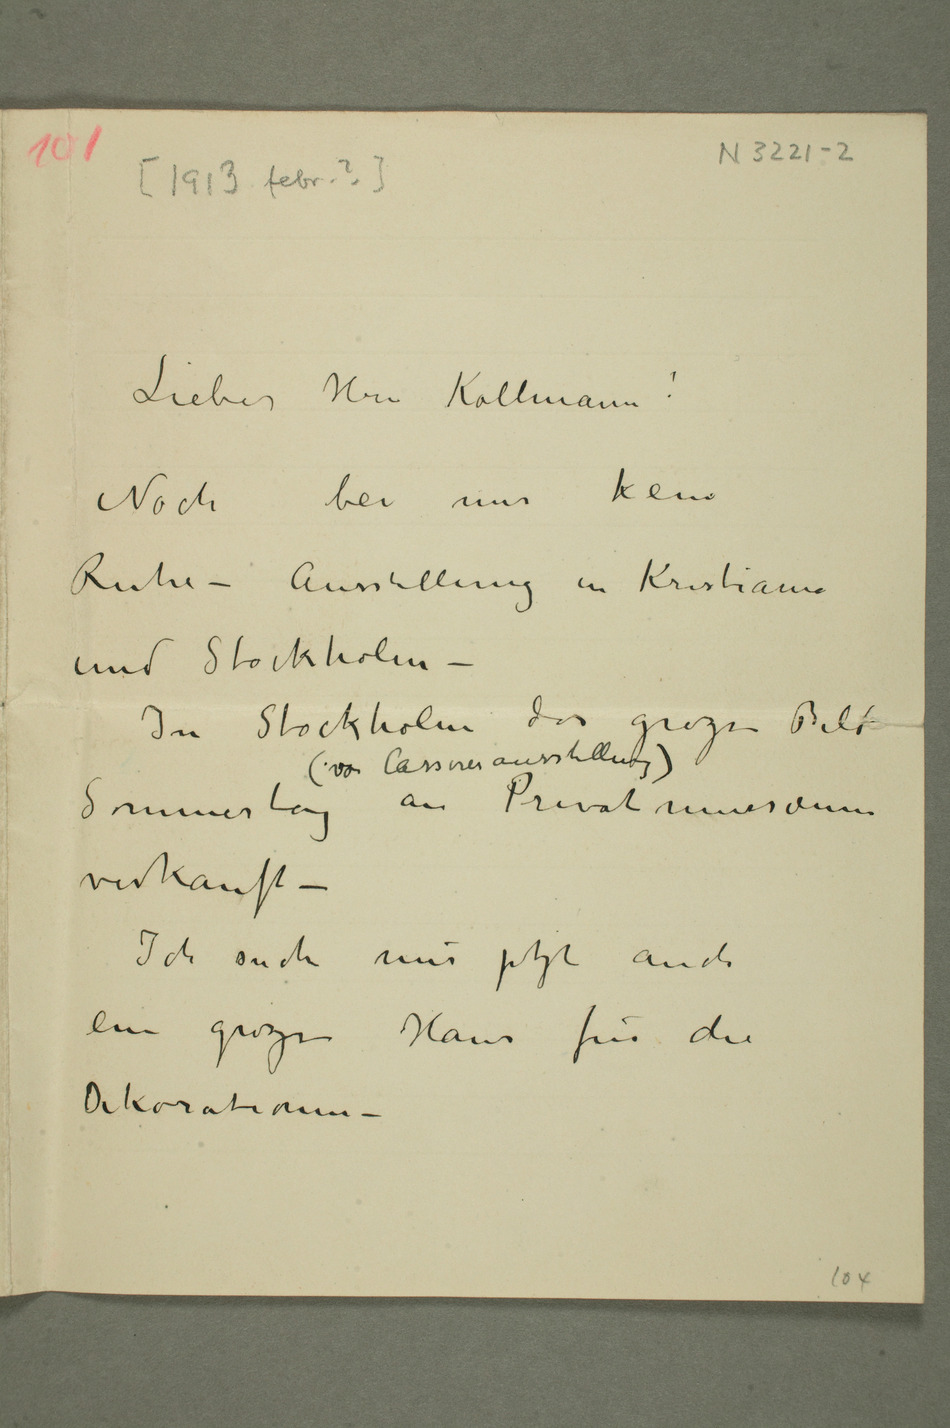 101
[1913 febr.?]
N 3221-2
Lieber Herr Kollmann!
Noch bei mir keine
Ruhe – Ausstellung in Kristiania
und Stockholm –
In Stockholm das groze Bild
(von Cassirerausstellung)
Sommertag an Privatmuseum
verkauft –
Ich suche mir jetzt auch
ein grozes Haus für die
Dekorationen –
104